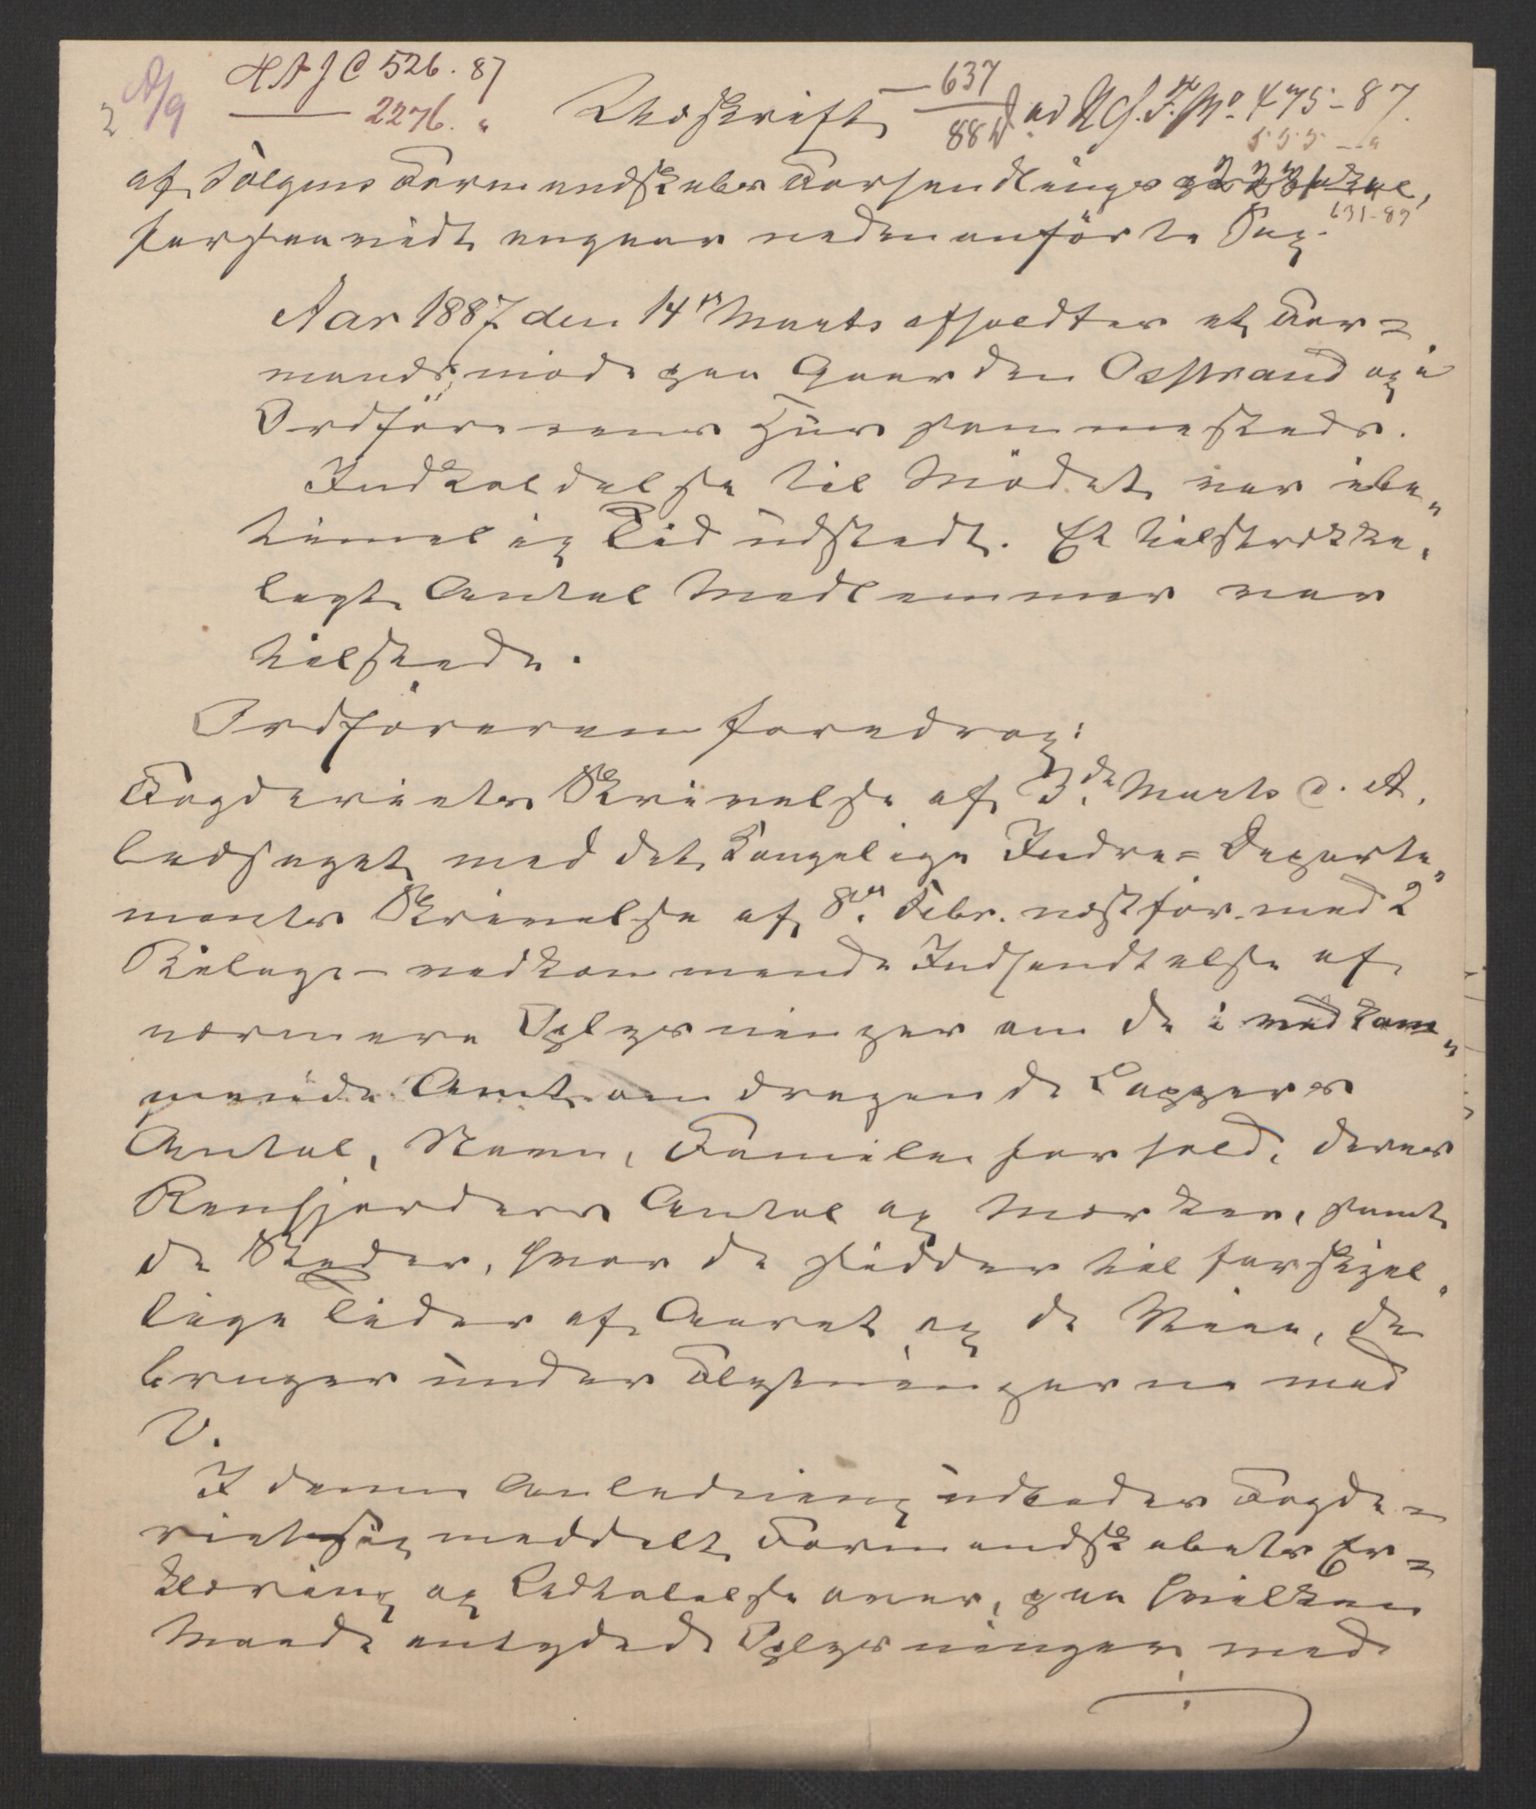 A/9
2
HAJC 526. 87
2276. "
Udskrift
637
88 D
ad No. 475 - 87.
555 - "
631-87
af Tolgens Formandskabs Forhandlingsprotokol,
forsaavidt angaar nedenanförte Sag.
Aar 1887 den 14de Marts afholdtes et For=
mandsmöde paa Gaarden Osstrand og i
Ordförerens Huus sammesteds.
Indkaldelse til Mödet var i be„
timelig Tid udstedt. Et tilstrække„
ligt Antal Medlemmer var
tilstede.
Ordföreren foredrog:
Fogderiets Skrivelse af 3de Marts d. A.
ledsaget med det Kongelige Indre= Departe„
ments Skrivelse af 8de Febr. næstfor. med 2
Bilage - vedkommende Indhendtelse af
nærmere Oplysninger om de i vedkom„
mende Amt omdragende Lappers
Antal, Navn, Familieforhold, deres
Renhjorders Antal og Mærker, samt
de Steder, hvor de sidder til forskjel„
lige Tider af Aaret og de Veie, de
bruger under Flytningerne med
V.
I denne Anledning udbeder Fogde=
riet sig meddelt Formandskabets Er=
klæring og Udtalelse over, paa hvilken
Maade antydede Oplysninger med